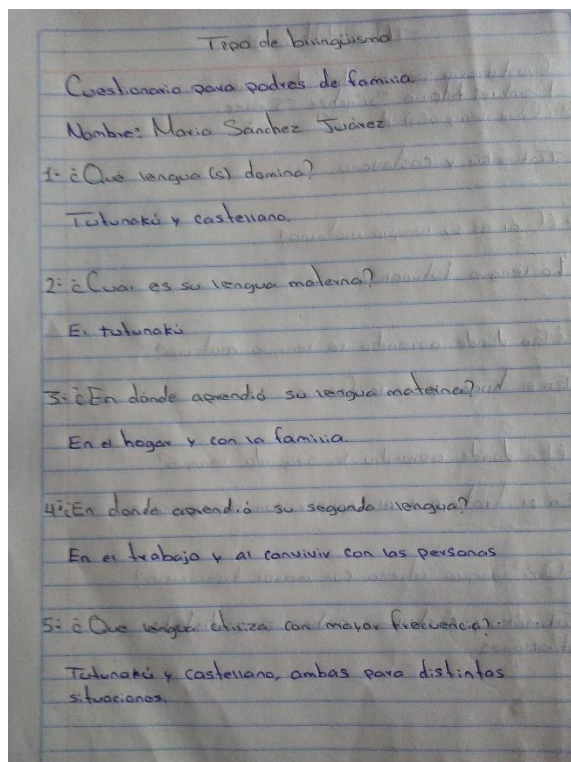 Tipo de bilingüismo
Cuestionario para padres de familia.
Nombre: María Sánchez Juárez
1- ¿Qué lengua (s) domina?
Tutunakú y castellano.
2- ¿Cual es su lengua materna?
El tutunakú
3- ¿En dónde aprendió su lengua materna?
En el hogar y con la familia.
4- ¿En donde aprendió su segunda lengua?
En el trabajo y al convivir con las personas
5- ¿Que lengua utiliza con mayor frecuencia?
Tutunakú y castellano, ambas para distintas
situaciones.